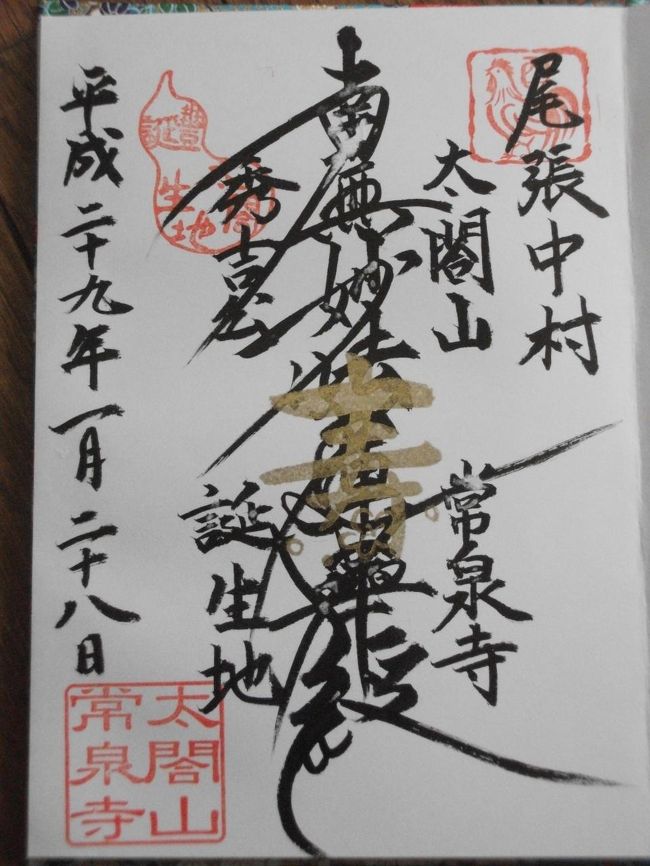 尾張中村
太閤山
常泉寺
南無妙法蓮華經
秀吉公
誕生地
平成二十九年一月二十八日
豐閤
誕生地
太閤山
常泉寺